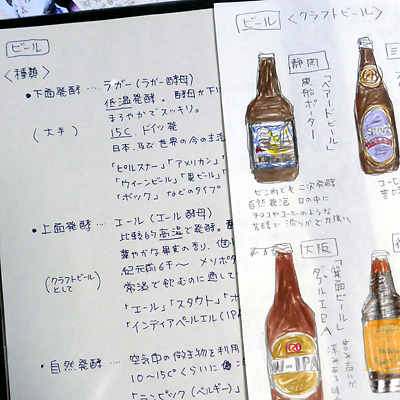 ビール
〈種類〉
・下面発酵 ‥‥ ラガー（ラガー酵母）
低温発酵。酵母が下に
まろやかでスッキリ。
（大手） 15C. ドイツ発
日本、及び世界の今の主流
「ピルスナー」「アメリカン」
「ウィーンビール」「黒ビール」
「ボック」などのタイプ
・上面発酵 ‥‥ エール（エール酵母）
比較的高温で発酵。
華やかな果実の香り、
（クラフトビールとして）
紀元前6千〜 メソポタ
常温で飲むのに適して
「エール」「スタウト」「ポ
「インディアペールエル（IPA
・自然発酵 ‥‥ 空気中の微生物を利用
10〜15℃くらいに
「ランビック（ベルギー）」
ビール 〈クラフトビール〉
静岡
「ベアードビール」
黒船ポーター
ビン内でも二次発酵
自然発泡 口の中に
チョコやコーヒーのような
大阪
「箕面ビール」
ダブルIPA
W-IPA
コーヒ